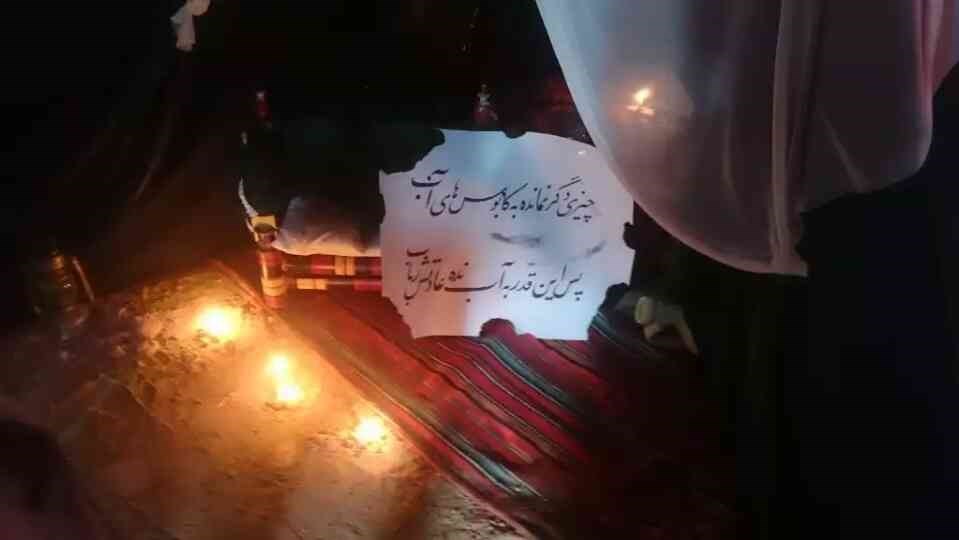 چیزی دگر نمانده به کابوس های آب
پس این قدر به آب نده عادتش رباب